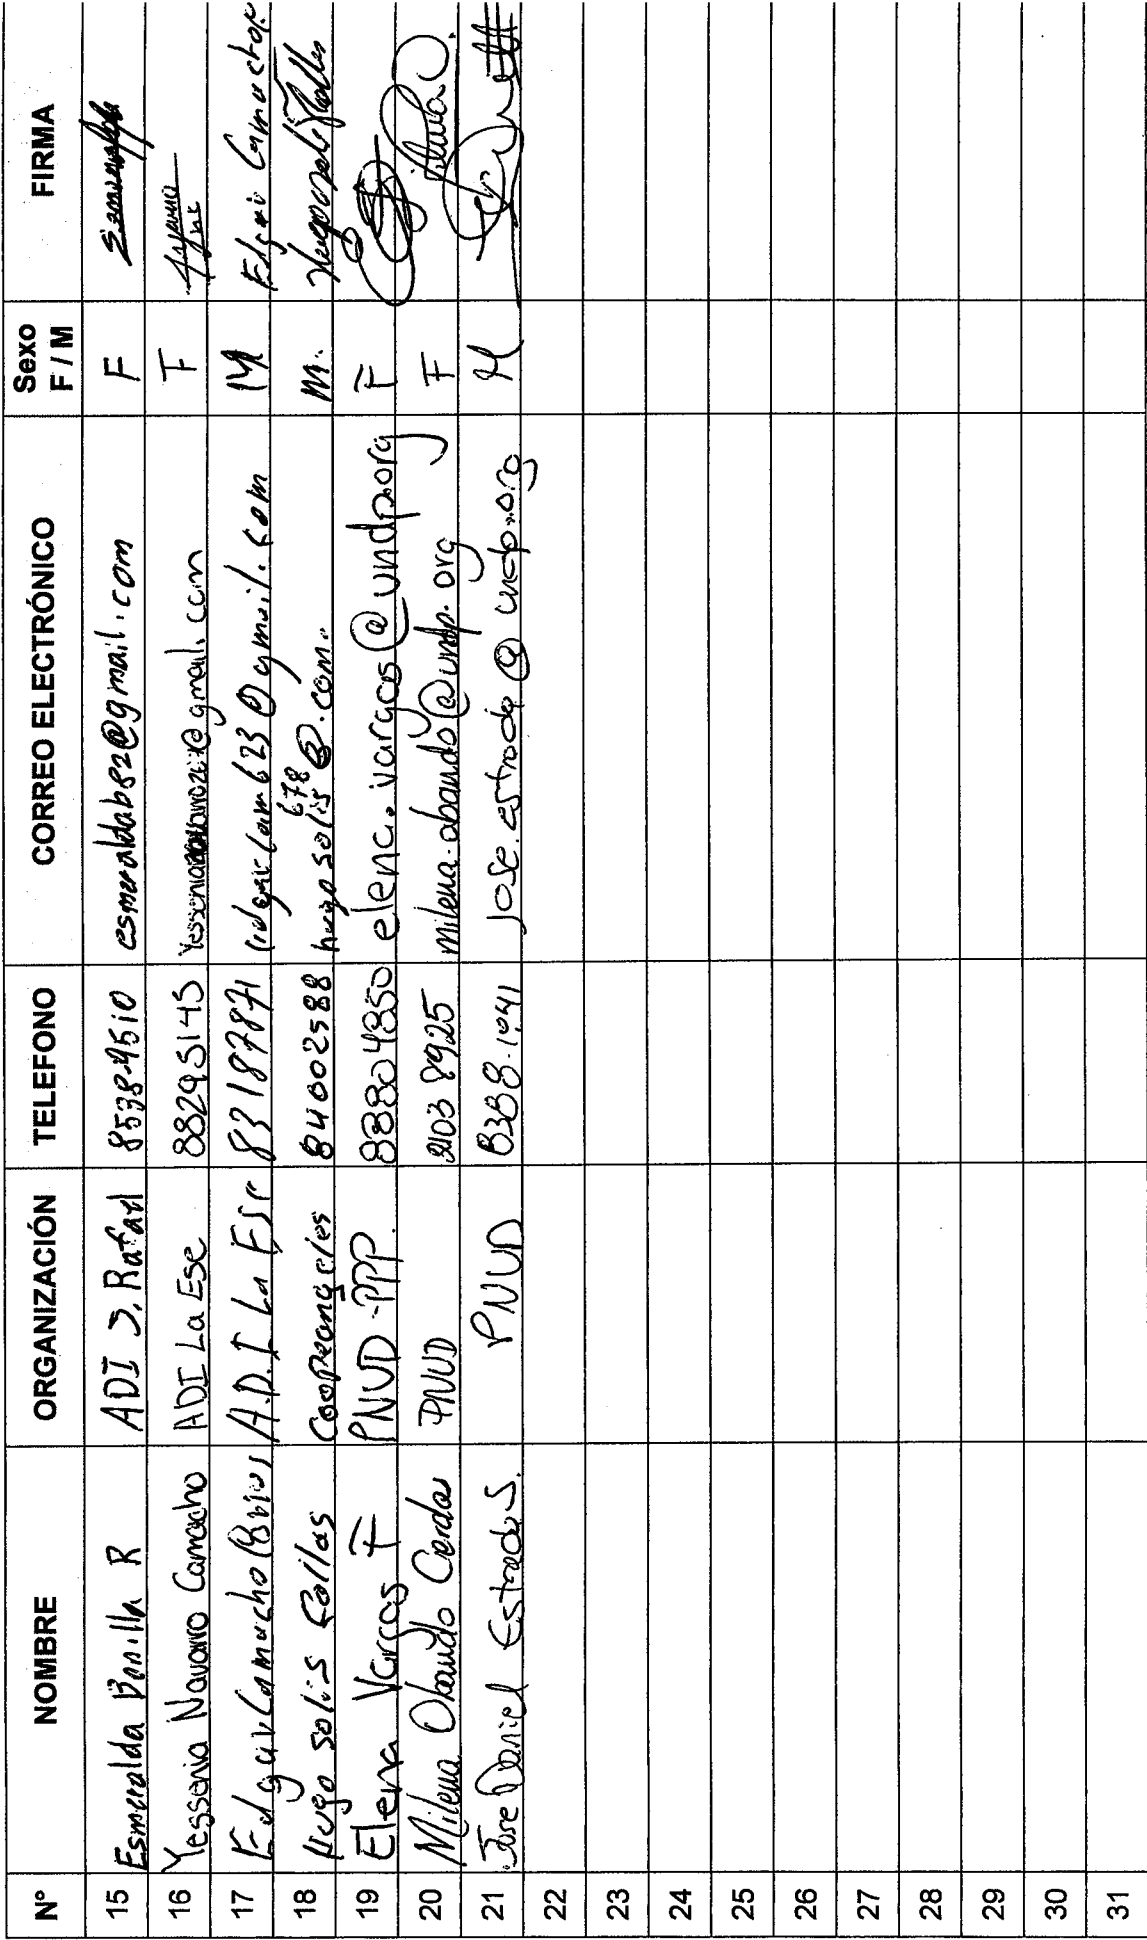 N° NOMBRE ORGANIZACIÓN TELEFONO CORREO ELECTRÓNICO Sexo F / M FIRMA
15 Esmeralda Bonilla R ADI S. Rafael 8538-9510 esmeraldab82@gmail.com F
16 Yessenia Navarro Camacho ADI La Ese 88295145 @gmail.com F
17 Edgar Camacho A.D.I La Ese 83187871 @gmail.com M Edgar Camacho
18 Hugo Solis Fallas Coopeangeles 84002588 hugosolis678@.com. M.
19 Elena Vargas F PNUD-PPP. 83804350 elena.vargas@undp.org F
20 Milena Obando Cerdas PNUD 8925 milena.obando@undp.org F
21 Jose Daniel Estrada S. PNUD 8388-1041 jose.estrada@undp.org M
22
23
24
25
26
27
28
29
30
31